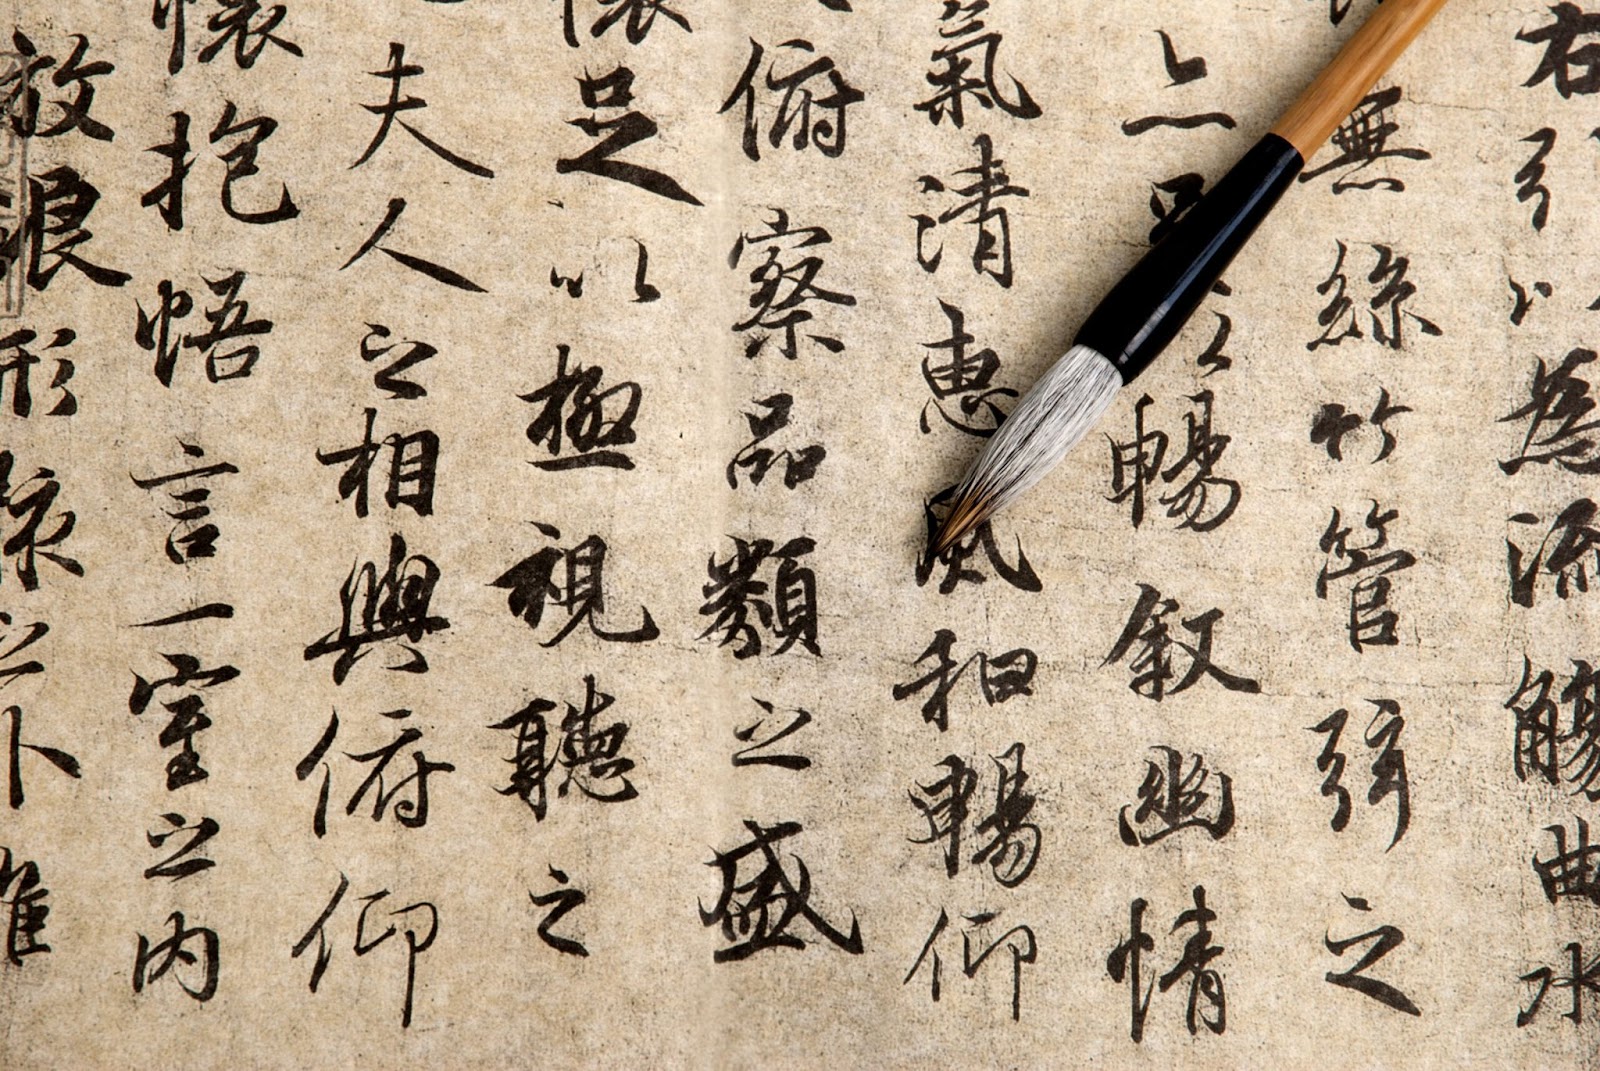 右引以為流觴曲水
無絲竹管弦之
亦足以暢叙幽情
氣清惠風和暢仰
俯察品類之盛
懷足以極視聽之
夫人之相與俯仰
懷抱悟言一室之内
放浪形骸之外雖